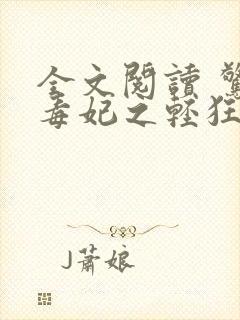 全文閱讀 驚
毒妃之輕狂
J蕭娘